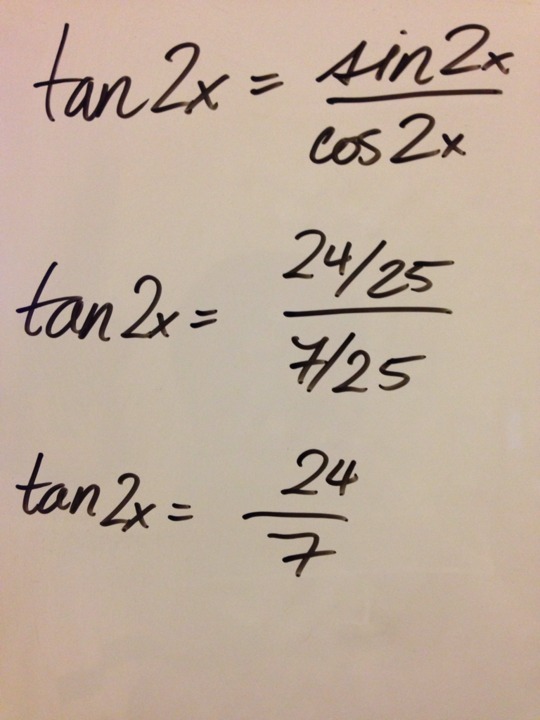 tan 2x = sin 2x / cos 2x
tan 2x = 24/25 / 7/25
tan 2x = 24 / 7